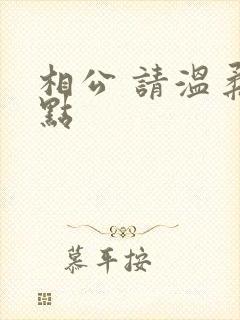 相公 請溫柔
點
慕平按